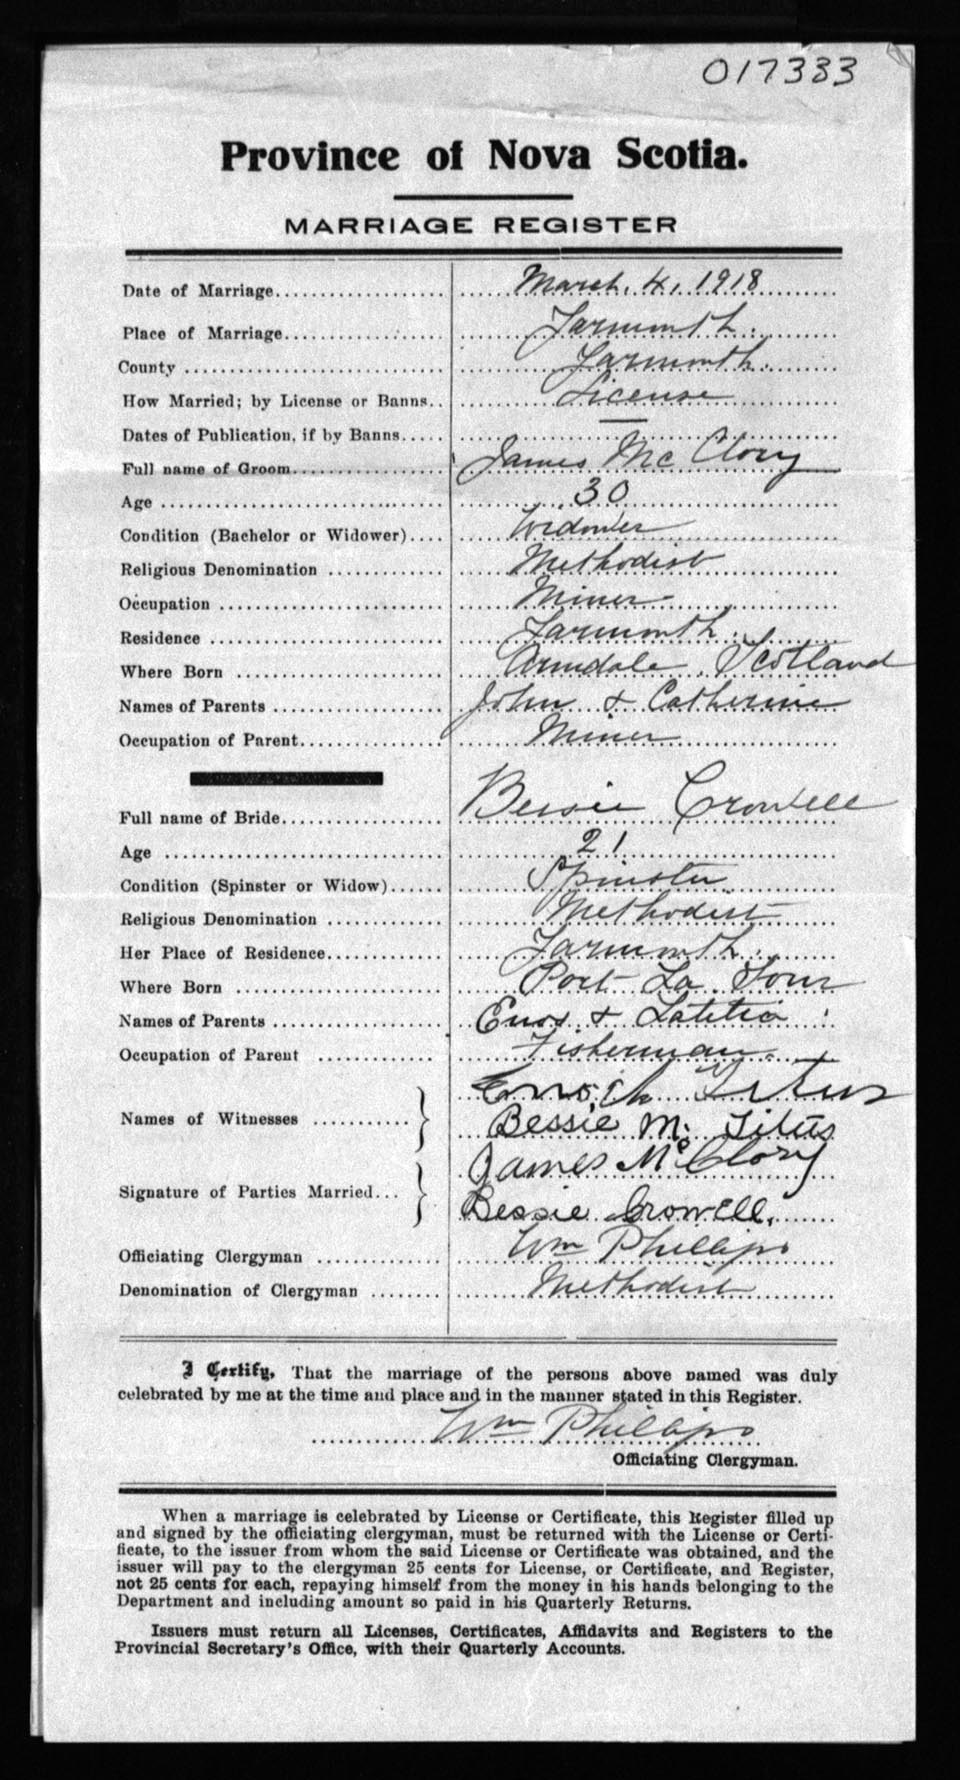 017333
Province of Nova Scotia.
MARRIAGE REGISTER
Date of Marriage March, 4, 1918
Place of Marriage Yarmouth.
County Yarmouth.
How Married; by License or Banns License
Dates of Publication, if by Banns —
Full name of Groom James McClory
Age 30
Condition (Bachelor or Widower) Widower
Religious Denomination Methodist
Occupation Miner
Residence Yarmouth.
Where Born Armdale, Scotland
Names of Parents John & Catherine
Occupation of Parent Miner
Full name of Bride Bessie Crowell
Age 21
Condition (Spinster or Widow) Spinster
Religious Denomination Methodist
Her Place of Residence Yarmouth.
Where Born Port La Tour
Names of Parents Enos & Latitia
Occupation of Parent Fisherman.
Names of Witnesses Enoch Titus
Bessie M. Titus
Signature of Parties Married James McClory
Bessie Crowell.
Officiating Clergyman Wm Phillips
Denomination of Clergyman Methodist
I Certify, That the marriage of the persons above named was duly
celebrated by me at the time and place and in the manner stated in this Register.
Wm Phillips
Officiating Clergyman.
When a marriage is celebrated by License or Certificate, this Register filled up
and signed by the officiating clergyman, must be returned with the License or Certi-
ficate, to the issuer from whom the said License or Certificate was obtained, and the
issuer will pay to the clergyman 25 cents for License, or Certificate, and Register,
not 25 cents for each, repaying himself from the money in his hands belonging to the
Department and including amount so paid in his Quarterly Returns.
Issuers must return all Licenses, Certificates, Affidavits and Registers to the
Provincial Secretary's Office, with their Quarterly Accounts.